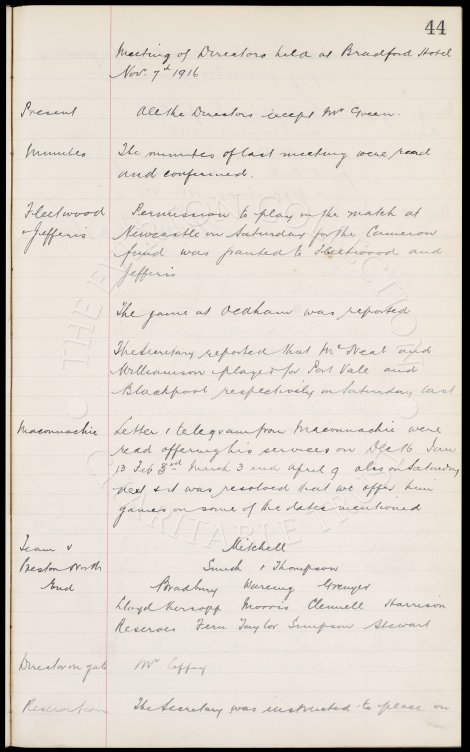 44
Meeting of Directors held at Bradford Hotel
Nov. 7th 1916
Present All the Directors except Mr Green.
Minutes The minutes of last meeting were read
and confirmed.
Fleetwood Permission to play in the match at
& Jefferis Newcastle on Saturday for the Cameron
fund was granted to Fleetwood and
Jefferis
The game at Oldham was reported
The Secretary reported that McNeal and
Williamson played for Port Vale and
Blackpool respectively on Saturday last
Maconnachie Letter & telegram from Maconnachie were
read offering his services on Dec 16 Jan
13 Feb 3rd March 3 and April 9 also on Saturday
next & it was resolved that we offer him
games on some of the dates mentioned
Team v Mitchell
Preston North Smith & Thompson
End Bradbury Wareing Grenyer
Lloyd Kirsopp Morris Clennell Harrison
Reserves Fern Taylor Simpson Stewart
Director on gate Mr Coffey
The Secretary was instructed to place on